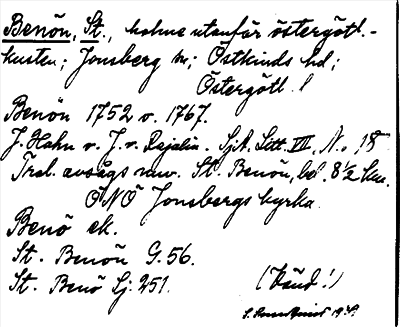 Benön, St., holme utanför östergötl.-
kusten; Jonsberg sn; Östkinds hd;
Östergötl. l
Benön 1752 o. 1767.
J. Hahn o. J. v. Rajalin. Sjk. Litt. VII, No 18
Trol. avsågs nuv. St. Benön, bel. 8 1/2 km.
ÖNÖ Jonsbergs kyrka.
Benö ek.
St. Benön G. 56.
St. Benö Sj. 251.
(Känd!)